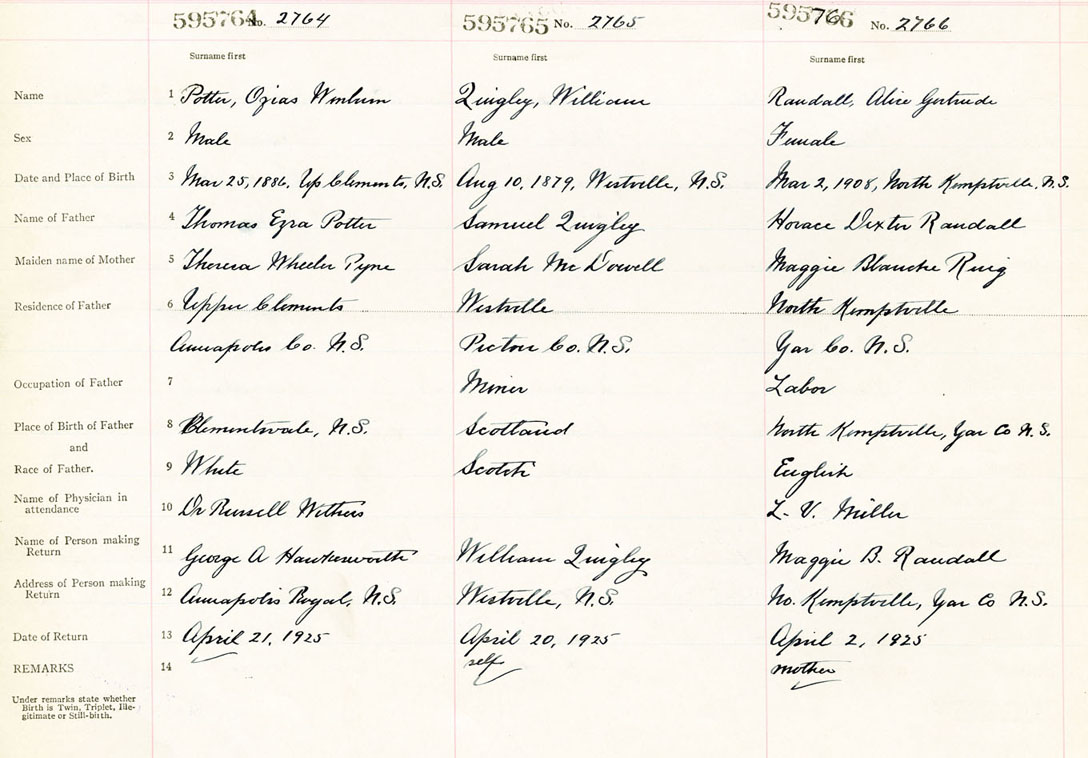 595764 No. 2764 595765 No. 2765 595766 No. 2766
Surname first Surname first Surname first
Name 1 Potter, Ozias Quigley, William Randall, Alice Gertrude
Sex 2 Male Male Female
Date and Place of Birth 3 Mar 25, 1886, Up Clements, N.S. Aug 10, 1879, Westville, N.S. Mar 2, 1908, North Kemptville, N.S.
Name of Father 4 Thomas Ezra Potter Samuel Quigley Horace Dexter Randall
Maiden name of Mother 5 Theresa Wheeler Pyne Sarah McDowell Maggie Blanche Ring
Residence of Father 6 Upper Clements Westville North Kemptville
Annapolis Co. N.S. Pictou Co. N.S. Yar Co. N.S.
Occupation of Father 7 Miner Labor
Place of Birth of Father 8 Clementsvale, N.S. Scotland North Kemptville, Yar Co N.S.
and
Race of Father. 9 White Scotch English
Name of Physician in
attendance 10 Dr Russell Withers L. V. Miller
Name of Person making
Return 11 George A Hawkesworth William Quigley Maggie B. Randall
Address of Person making
Return 12 Annapolis Royal, N.S. Westville, N.S. No. Kemptville, Yar Co N.S.
Date of Return 13 April 21, 1925 April 20, 1925 April 2, 1925
REMARKS 14 self mother
Under remarks state whether
Birth is Twin, Triplet, Ille-
gitimate or Still-birth.